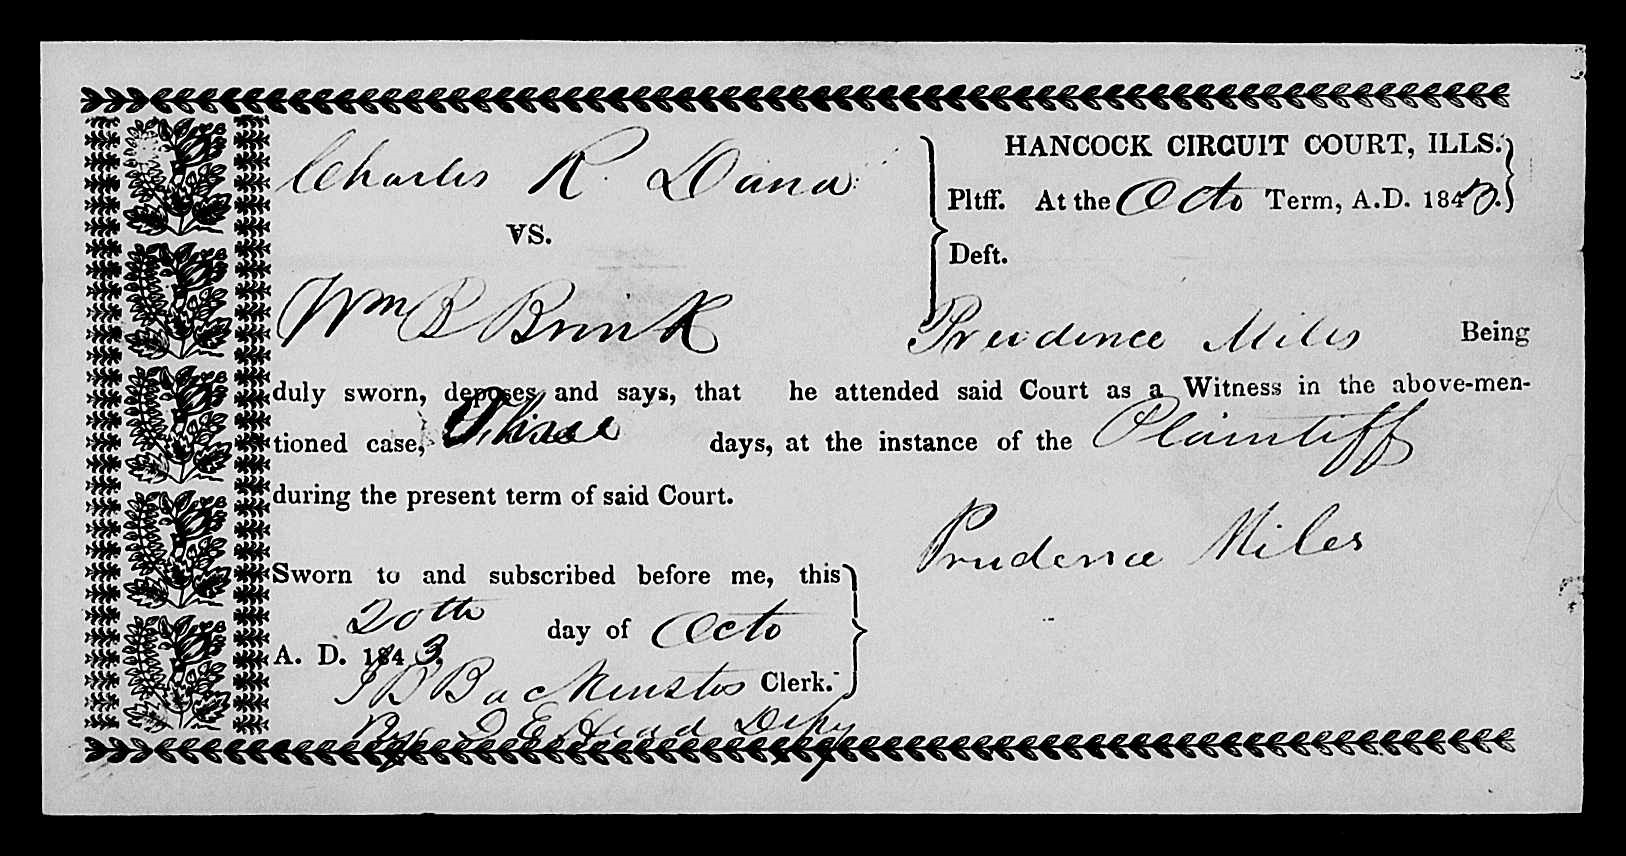 HANCOCK CIRCUIT COURT, ILLS.
Charles R. Dana Pltff. At the Octo Term, A.D. 1843.
VS.
Deft.
Wm B Brink Prudence Miles Being
duly sworn, deposes and says, that he attended said Court as a Witness in the above-men-
tioned case, Three days, at the instance of the Plaintiff
during the present term of said Court.
Prudence Miles
Sworn to and subscribed before me, this
20th day of Octo
A. D. 1843
J B Backenstos Clerk.
By J E Head Depy